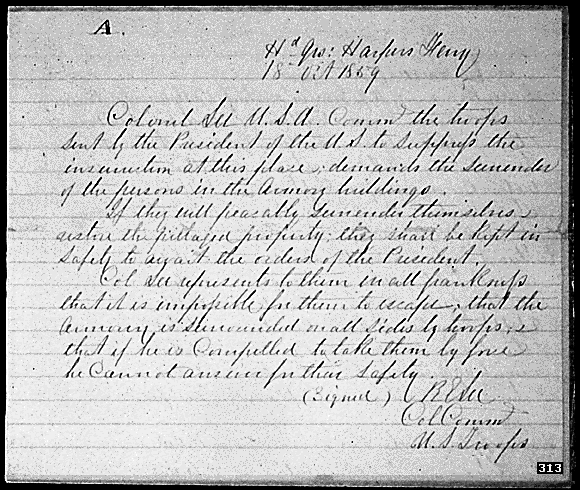 A.
Hd Qrs: Harpers Ferry
18 Oct 1859
Colonel Lee U.S.A. Commd the troops
sent by the President of the U.S. to suppress the
insurrection at this place; demands the surrender
of the persons in the Armory buildings.
If they will peacably surrender themselves &
restore the pillaged property; they shall be kept in
safety to await the orders of the President.
Col Lee represents to them in all frankness
that it is impossible for them to escape; that the
Armory is surrounded on all sides by troops; &
that if he is compelled to take them by force
he cannot answer for their safety.
(Signed) R E Lee
Col Commd
U.S. Troops
313